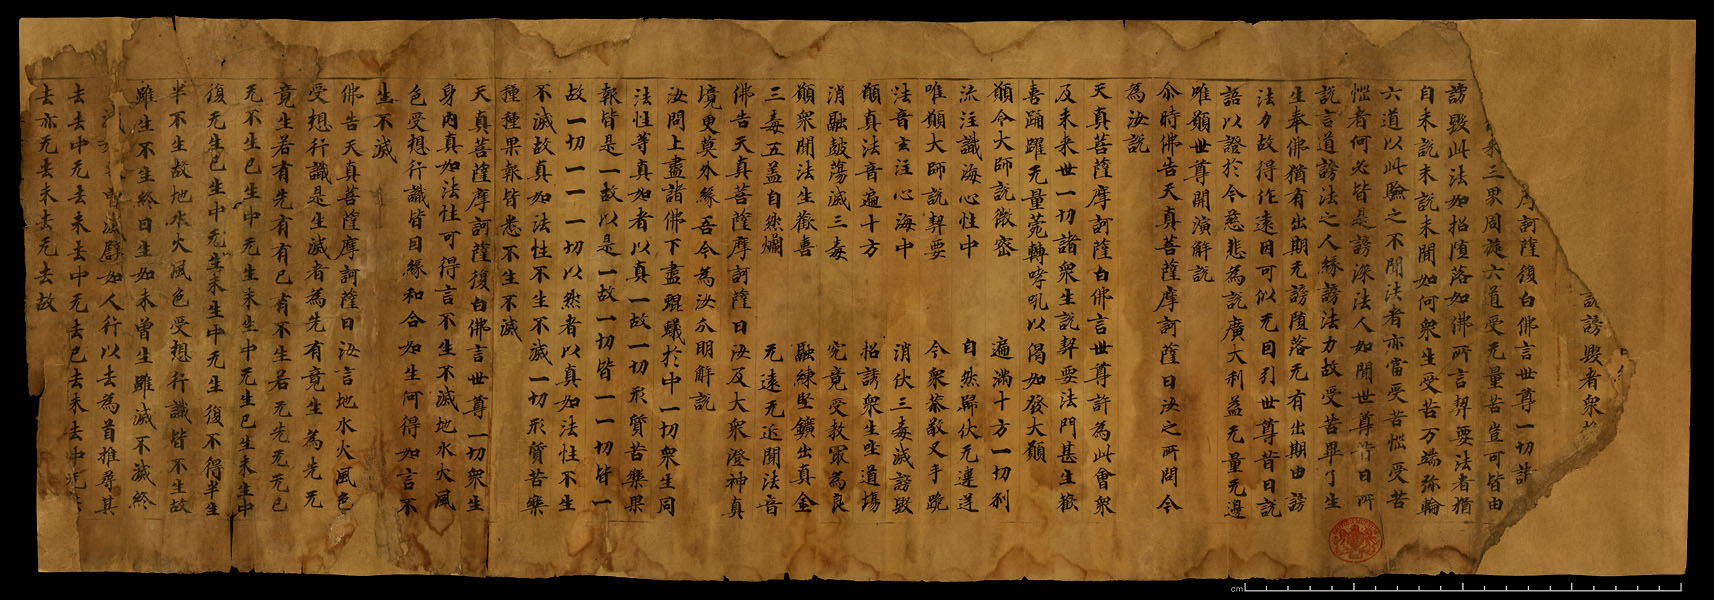 説謗毀者衆
訶薩復白佛言世尊一切諸
来三界周旋六道受无量苦豈可皆由
謗毀此法如招墮落如佛所言契要法者猶
自未説未説未聞如何衆生受苦万端弥輪
六道以此驗之不聞法者亦當受苦惱受苦
惱者何必皆是謗深法人如聞世尊昔日所
説言道謗法之人緣謗法力故受苦畢了生
生奉佛猶有出期无謗墮落无有出期由謗
法力故得作遠因可似无目引世尊昔日説
語以證於今慈悲為説廣大利益无量无邊
唯願世尊開演解説
尒時佛告天真菩薩摩訶薩曰汝之所問今
為汝説
天真菩薩摩訶薩白佛言世尊許為此會衆
及未来世一切諸衆生説契要法門甚生歡
喜踊躍无量菀轉哮吼以偈如發大願
願今大師説微密 遍滿十方一切刹
流注識海心性中 自然歸伏无違逆
唯願大師説契要 今衆恭敬叉手跪
法音玄注心海中 消伏三毒滅謗毀
願真法音遍十方 招誘衆生坐道場
消融鼓蕩滅三毒 究竟受教最為良
願衆聞法生歡喜 融練堅鑛出真金
三毒五盖自然爛 无遠无近聞法音
佛告天真菩薩摩訶薩曰汝及大衆澄神真
境更莫外緣吾今為汝分明解説
汝問上盡諸佛下盡蜫蟻於中一切衆生同
法性等真如者以真一故一切形質苦樂果
報皆是一故以是一故一切皆一一切皆一
故一切一一一切以然者以真如法性不生
不滅故真如法性不生不滅一切形質苦樂
種種果報皆悉不生不滅
天真菩薩摩訶薩復白佛言世尊一切衆生
身內真如法性可得言不生不滅地水火風
色受想行識皆因緣和合如生何得如言不
生不滅
佛告天真菩薩摩訶薩曰汝言地水火風色
受想行識是生滅者為先有竟生為先无
竟生若有先有有已有不生若无先无无已
无不生已生中无生未生中无生已生未生中
復无生已生中无生未生中无生復不得半生
半不生故地水火風色受想行識皆不生故
雖生不生終日生如未曾生雖滅不滅終
滅辟如人行以去為首推尋其
去去中无去未去中无去已去未去中
去亦无去未去无去故